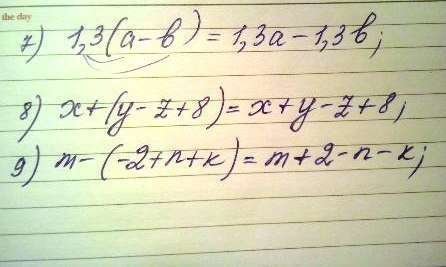 the day
7) 1,3(a-b) = 1,3a - 1,3b;
8) x+(y-z+8)=x+y-z+8;
9) m-(-2+n+k)=m+2-n-k;